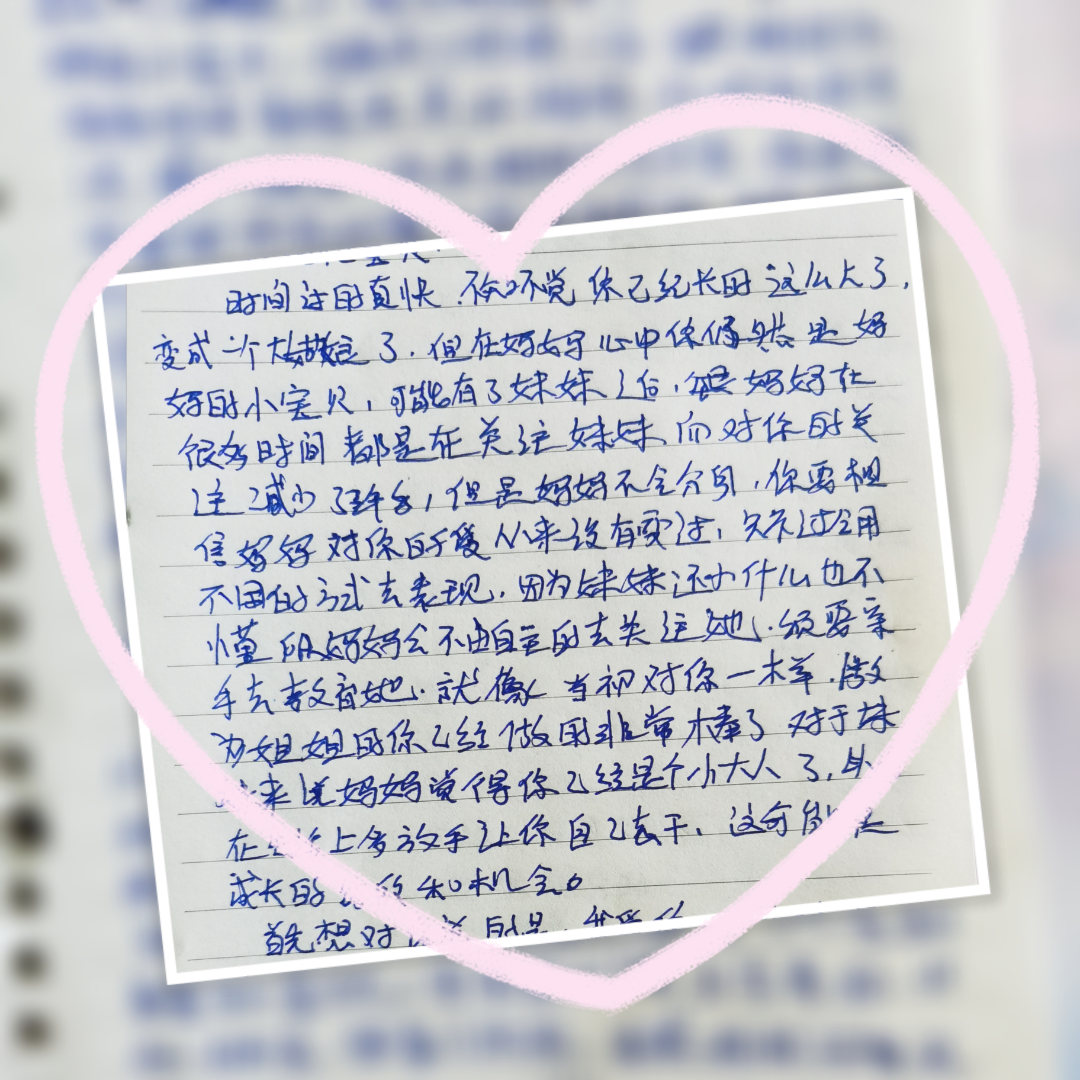 时间过的真快.不知不觉你已经长的这么大了,
变成一个大姑娘了.但在妈妈心中你仍然是妈
妈的小宝贝,可能有了妹妹之后,妈妈在
很多时间都是在关注妹妹.而对你的关
注减少了许多,但是妈妈不会分身.你要相
信妈妈对你的爱从来没有变过,只不过是用
不同的方式去表现.因为妹妹还小什么也不
懂所以妈妈会不由自主的去关注她.须要亲
手去教育她.就像当初对你一样.做
为姐姐的你已经做的非常棒了对于妹
来说妈妈觉得你已经是个小大人了,
在上多放手让你自己去干.这可能是
成长的和机会。
首先想对的是